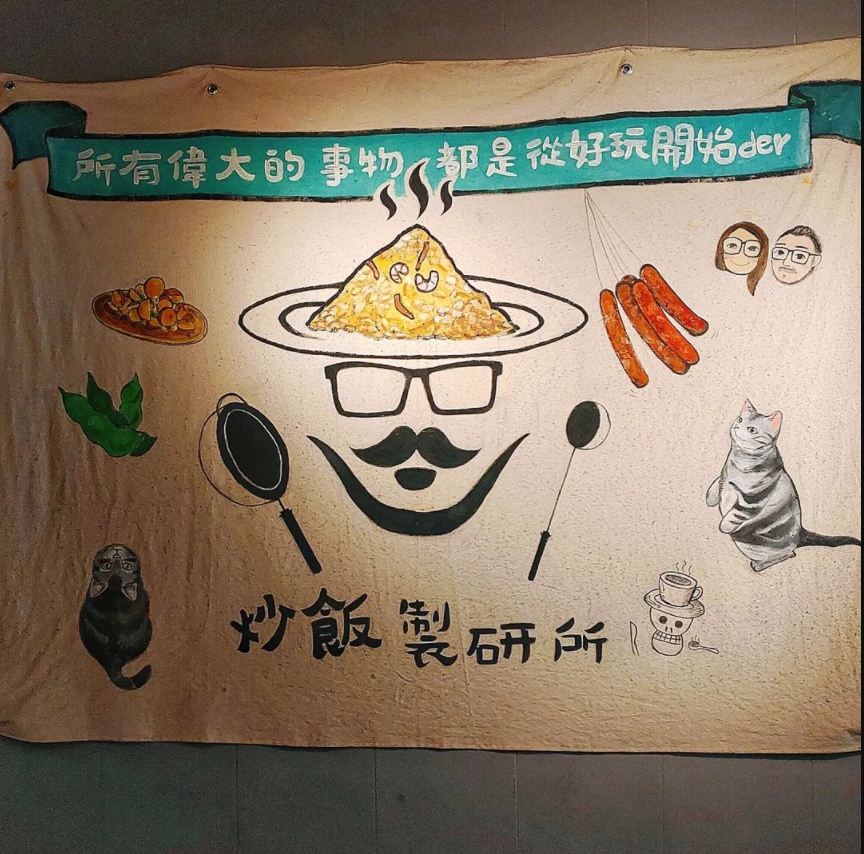 所有偉大的事物 都是從好玩開始der
炒飯製研所